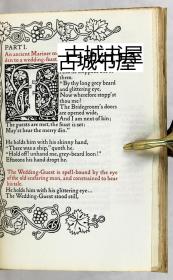 PART I.
an ancient Mariner m
den to a wedding-feast
古城书屋
"By thy long grey beard
and glittering eye,
Now wherefore stopp'st
thou me?
The Bridegroom's doors
are opened wide,
And I am next of kin;
The guests are met, the feast is set:
May'st hear the merry din."
He holds him with his skinny hand,
"There was a ship," quoth he.
"Hold off! unhand me, grey-beard loon!"
Eftsoons his hand dropt he.
The Wedding-Guest is spell-bound by the eye
of the old seafaring man, and constrained to hear
his tale.
He holds him with his glittering eye—
The Wedding-Guest stood still,